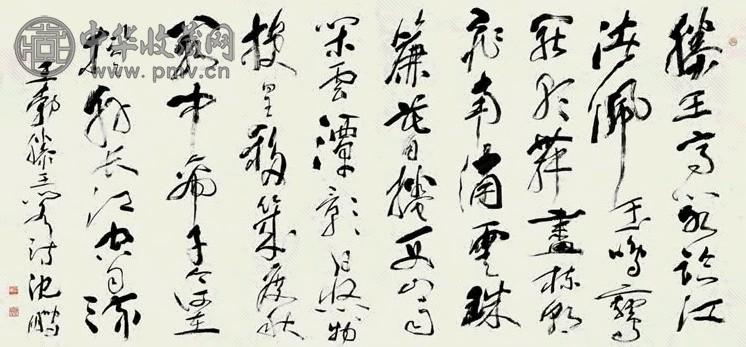 滕王高閣臨江
渚佩玉鳴鸞
罷歌舞畫棟朝
飛南浦雲珠
簾暮捲西山雨
閒雲潭影日悠悠物
換星移幾度秋
閣中帝子今何在
檻外長江空自流
王勃滕王閣詩 沈鵬
中华收藏网
www.pmv.cn